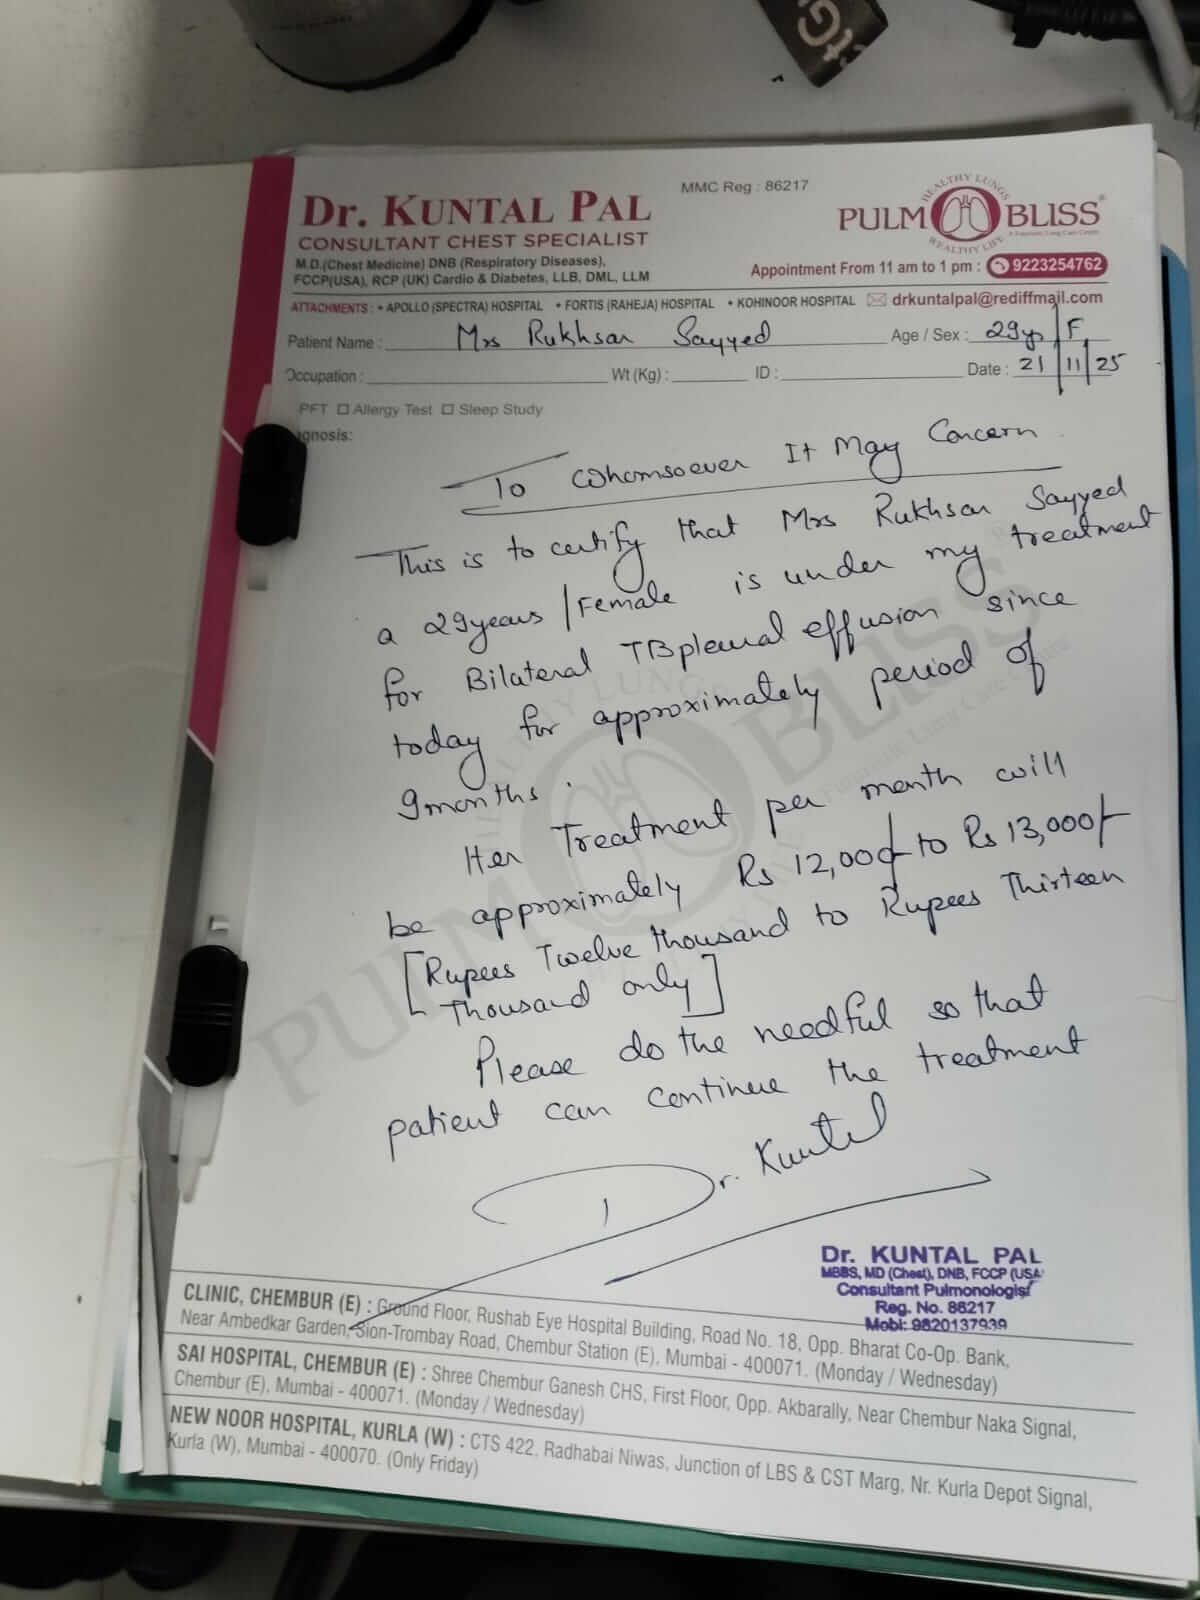 tG
Dr. KUNTAL PAL
MMC Reg : 86217
CONSULTANT CHEST SPECIALIST
M.D.(Chest Medicine) DNB (Respiratory Diseases),
FCCP(USA), RCP (UK) Cardio & Diabetes, LLB, DML, LLM
HEALTHY LUNGS
PULMO BLISS®
WEALTHY LIFE
Appointment From 11 am to 1 pm : 9223254762
ATTACHMENTS : • APOLLO (SPECTRA) HOSPITAL • FORTIS (RAHEJA) HOSPITAL • KOHINOOR HOSPITAL drkuntalpal@rediffmail.com
Patient Name : Mrs Rukhsar Sayyed Age / Sex : 29yr/F
Occupation : Wt (Kg) : ID : Date : 21/11/25
PFT Allergy Test Sleep Study
agnosis:
To Whomsoever It May Concern
This is to certify that Mrs Rukhsar Sayyed
a 29years/Female is under my treatment
for Bilateral TB pleural effusion since
today for approximately period of
9months.
Her Treatment per month will
be approximately Rs 12,000/- to Rs 13,000/-
[Rupees Twelve thousand to Rupees Thirteen
Thousand only]
Please do the needful so that
patient can continue the treatment
Dr. Kuntal
Dr. KUNTAL PAL
MBBS, MD (Chest), DNB, FCCP (USA)
Consultant Pulmonologist
Reg. No. 86217
Mobl: 9820137939
CLINIC, CHEMBUR (E) : Ground Floor, Rushab Eye Hospital Building, Road No. 18, Opp. Bharat Co-Op. Bank,
Near Ambedkar Garden, Sion-Trombay Road, Chembur Station (E), Mumbai - 400071. (Monday / Wednesday)
SAI HOSPITAL, CHEMBUR (E) : Shree Chembur Ganesh CHS, First Floor, Opp. Akbarally, Near Chembur Naka Signal,
Chembur (E), Mumbai - 400071. (Monday / Wednesday)
NEW NOOR HOSPITAL, KURLA (W) : CTS 422, Radhabai Niwas, Junction of LBS & CST Marg, Nr. Kurla Depot Signal,
Kurla (W), Mumbai - 400070. (Only Friday)